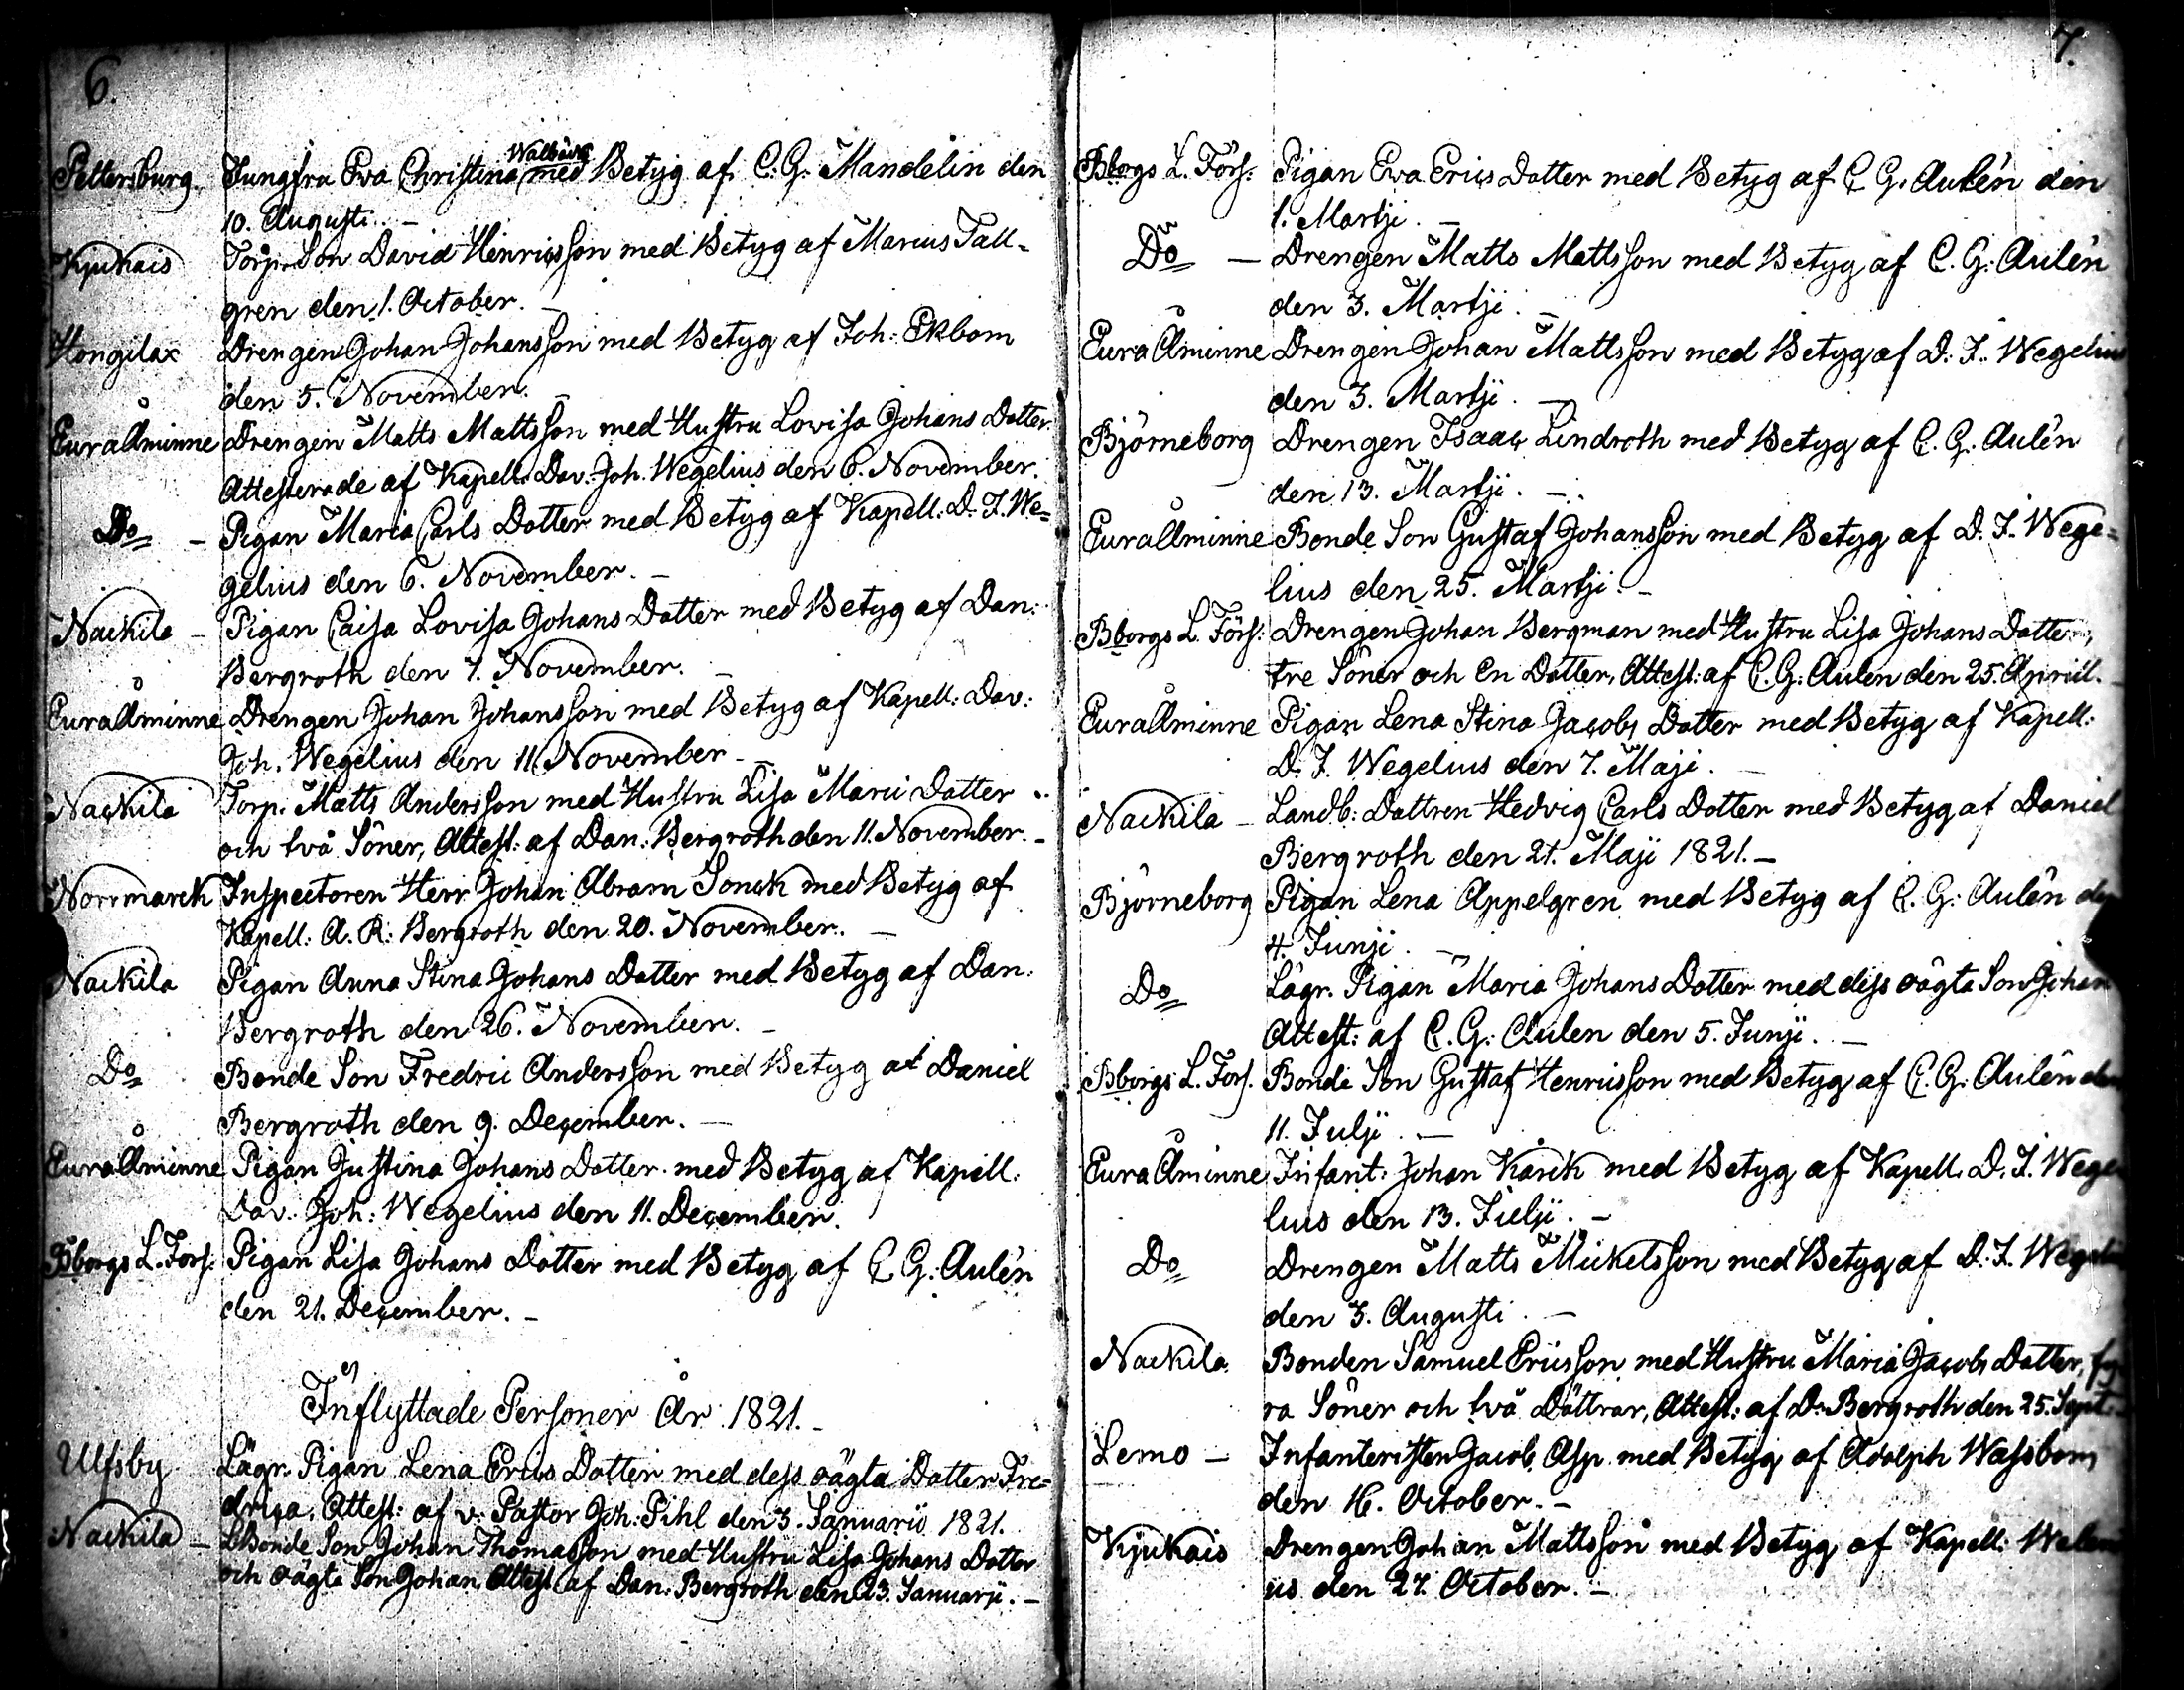 6.
Pettersburg Jungfru Eva Christina Walberg med Betyg af C. G. Mandelin den
10. Augusti. –
Kjukais Torp. Son David Henricsson med Betyg af Marcus Tall-
gren den 1. October. –
Hongilax Drengen Johan Johansson med Betyg af Joh: Ekbom
den 5. November. –
EuraÅminne Drengen Matts Mattsson med Hustru Lovisa Johans Dotter
Attesterade af Kapell. Dav. Joh. Wegelius den 6. November.
Do – Pigan Maria Carls Dotter med Betyg af Kapell: D. J. We=
gelius den 6. November. –
Nackila – Pigan Caisa Lovisa Johans Dotter med Betyg af Dan:
Bergroth den 7. November. –
EuraÅminne Drengen Johan Johansson med Betyg af Kapell: Dav:
Joh. Wegelius den 11 November –
Nackila Torp. Matts Andersson med Hustru Lisa Marci Dotter
och två Söner, Attest: af Dan: Bergroth den 11. November. –
Norrmarck Inspectoren Herr Johan Abram Sonck med Betyg af
Kapell: A. R: Bergroth den 20. November. –
Nackila Pigan Anna Stina Johans Dotter med Betyg af Dan:
Bergroth den 26. November. –
Do Bonde Son Fredric Andersson med Betyg af Daniel
Bergroth den 9. December. –
EuraÅminne Pigan Justina Johans Dotter med Betyg af Kapell:
Dav: Joh: Wegelius den 11. December.
Bborgs L. Förs: Pigan Lisa Johans Dotter med Betyg af C. G: Aulén
den 21. December. –
Inflyttade Personer År 1821. –
Ulfsby Lägr. Pigan Lena Erics Dotter med dess oägta Dotter Fre=
drica, Attest: af v: Pastor Joh: Pihl den 3. Januarii 1821.
Nackila – Bonde Son Johan Thomasson med Hustru Lisa Johans Dotter
och oägta Son Johan, Attest af Dan: Bergroth den 23. Januarii. –
7.
Bborgs L. Förs: Pigan Eva Erics Dotter med Betyg af C. G. Aulén den
1. Martji. –
Do – Drengen Matts Mattsson med Betyg af C. G: Aulén
den 3. Martji. –
EuraÅminne Drengen Johan Mattsson med Betyg af D: J. Wegelius
den 3. Martji. –
Björneborg Drengen Isaac Lindroth med Betyg af C. G. Aulén
den 13. Martji. –
EuraÅminne Bonde Son Gustaf Johansson med Betyg af D. J. Wege=
lius den 25. Martji. –
Bborgs L. Förs: Drengen Johan Bergman med Hustru Lisa Johans Dotter,
tre Söner och en Dotter, Attest: af C. G: Aulen den 25. April. –
EuraÅminne Pigan Lena Stina Jacobs Dotter med Betyg af Kapell:
D. J. Wegelius den 7. Maji. –
Nackila – Landb: Dottren Hedvig Carls Dotter med Betyg af Daniel
Bergroth den 21. Maji 1821. –
Björneborg Pigan Lena Appelgren med Betyg af C. G: Aulén den
4. Junji. –
Do Lägr. Pigan Maria Johans Dotter med dess oägta Son Johan
Attest: af C. G: Aulen den 5. Junji. –
Bborgs L. Förs. Bonde Son Gustaf Henricsson med Betyg af C. G: Aulén den
11. Julji. –
EuraÅminne Infant: Johan Karck med Betyg af Kapell. D. J. Wege
lius den 13. Julji. –
Do Drengen Matts Mickelsson med Betyg af D. J. Wegelius
den 3. Augusti. –
Nackila Bonden Samuel Ericsson med Hustru Maria Jacobs Dotter, fy
ra Söner och två Döttrar, Attest: af D. Bergroth den 25. Sept. –
Lemo – Infanteristen Jacob Asp med Betyg af Adolph Wassbom
den 16. October. –
Kjukais Drengen Johan Mattsson med Betyg af Kapell:
us den 27. October. –